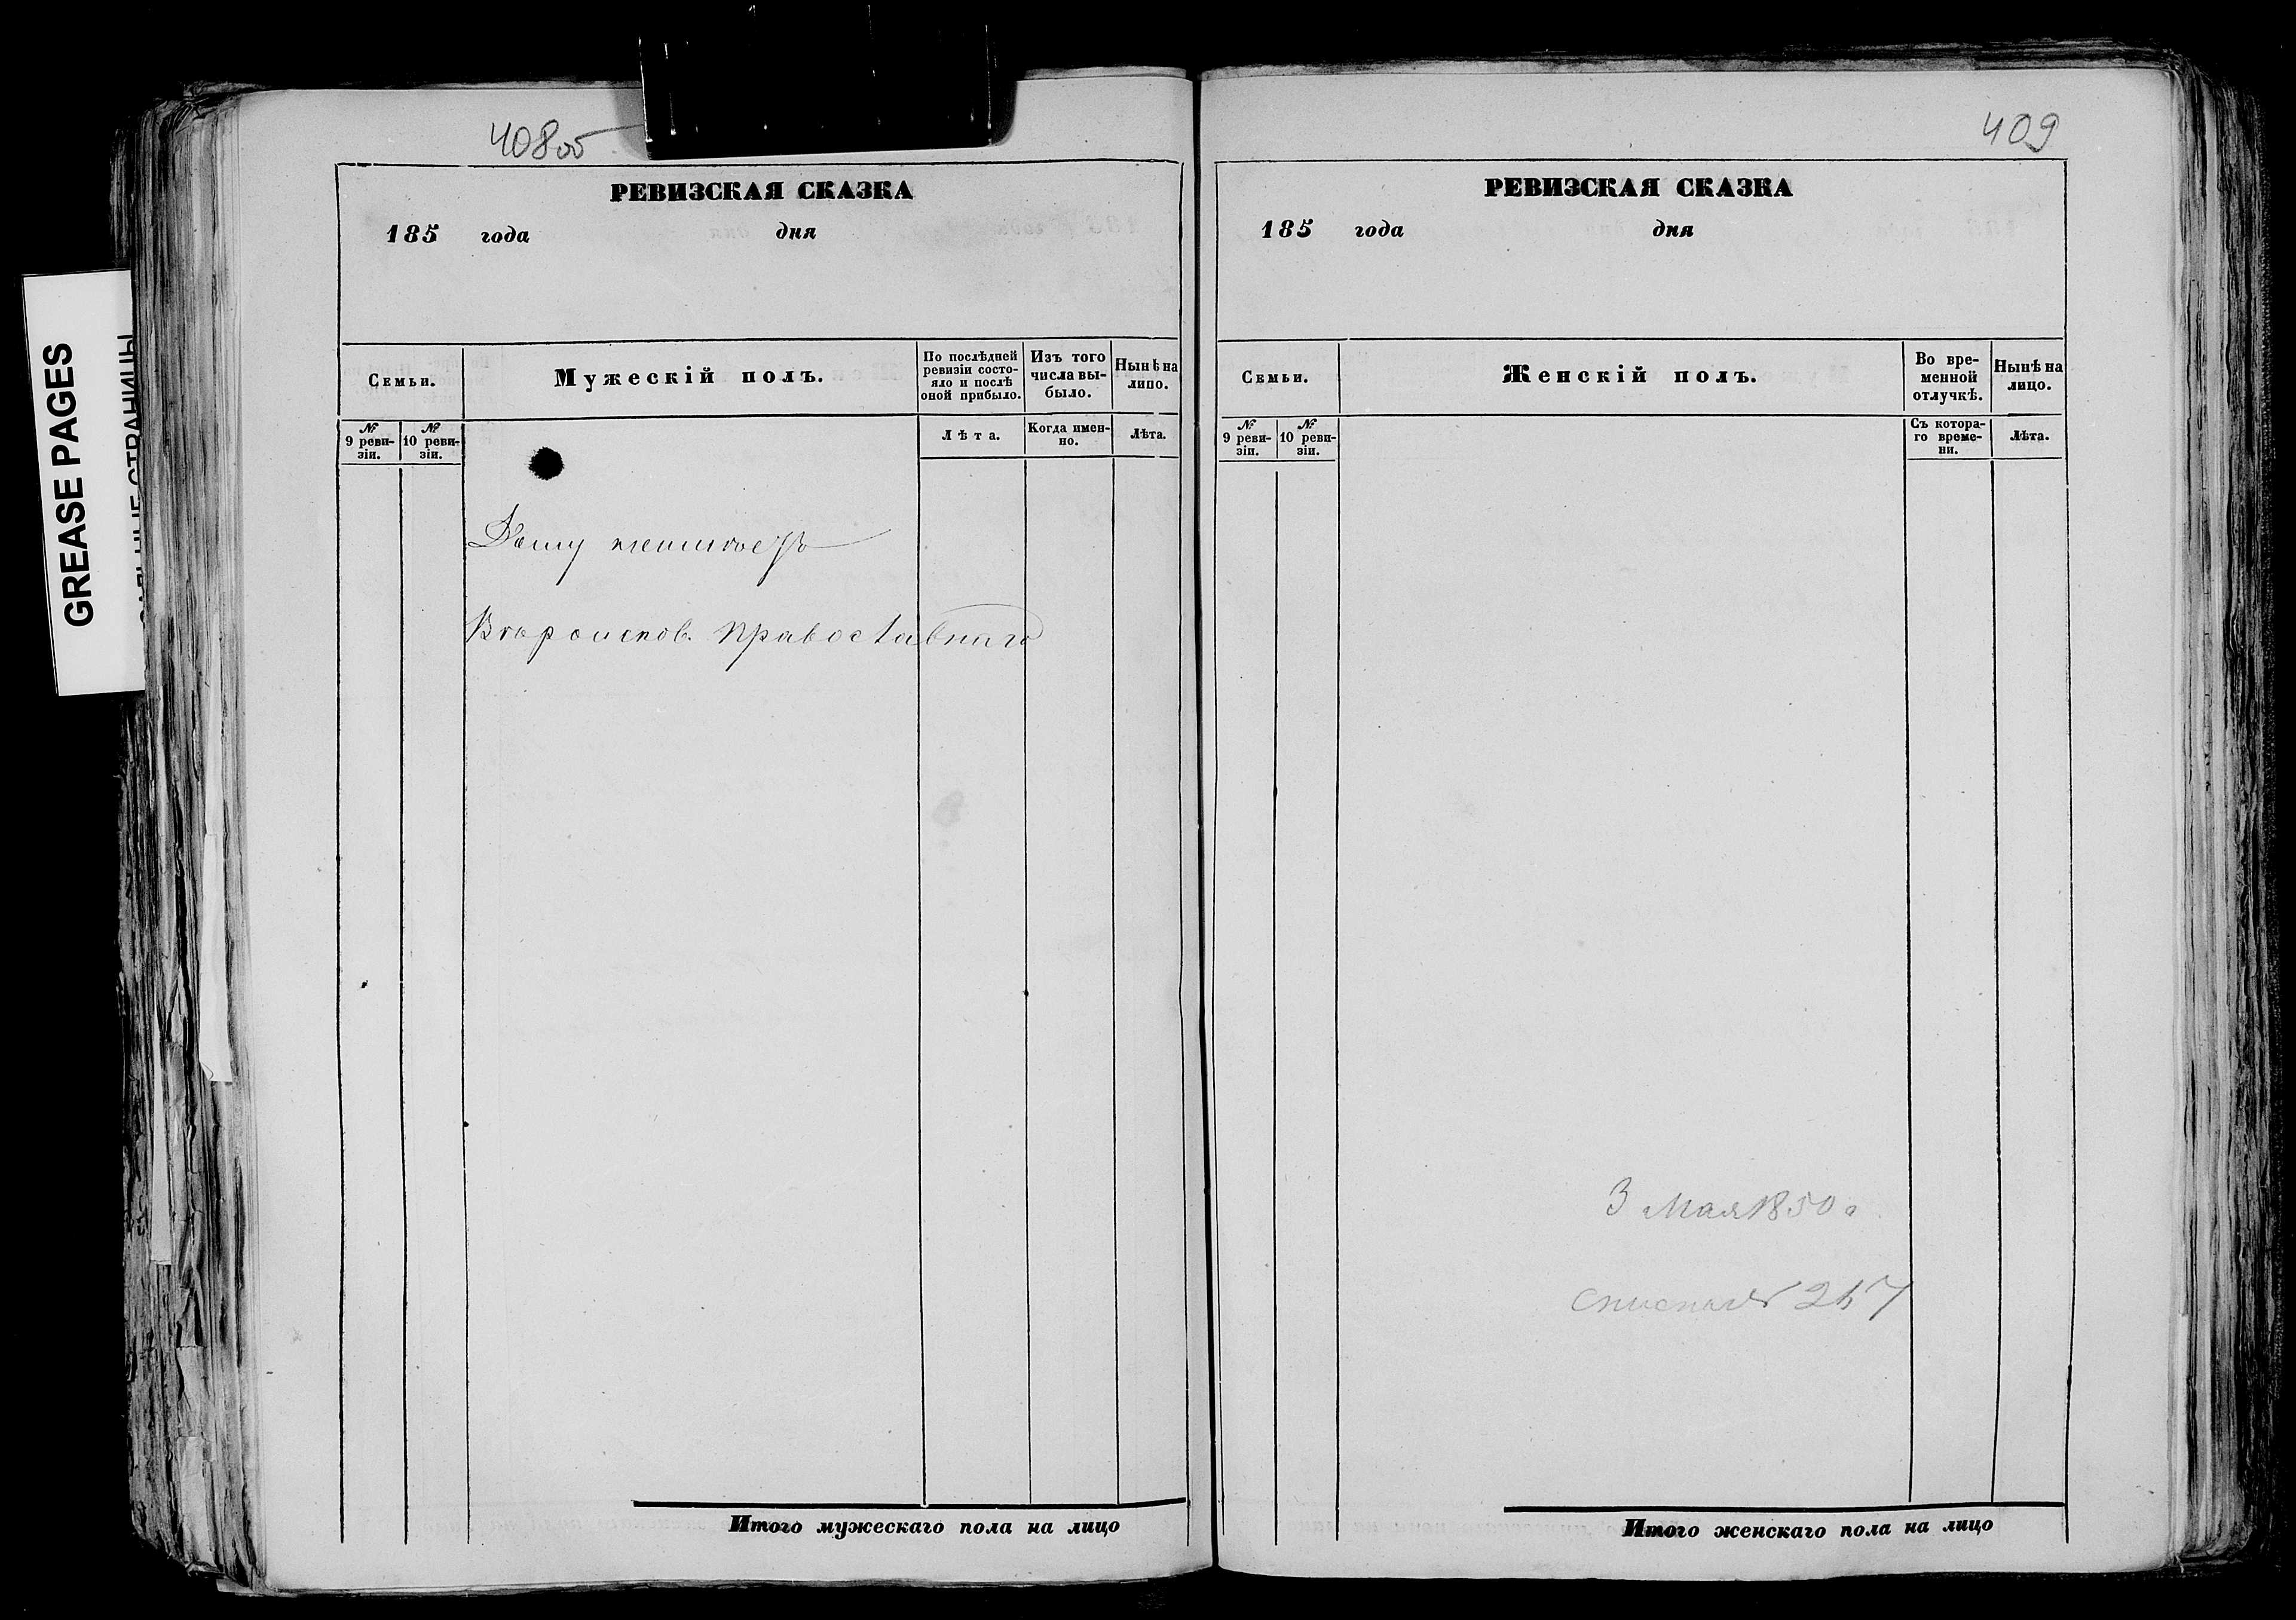 GREASE PAGES
408 об
РЕВИЗСКАЯ СКАЗКА
185 года дня
Семьи.
Мужескій полъ.
По послѣдней ревизіи состо-
яло и послѣ оной прибыло.
Изъ того числа вы-
было.
Нынѣ на лицо.
№ 9 реви-
зіи.
№ 10 реви-
зіи.
Лѣта.
Когда имен-
но.
Лѣта.
Вѣроиспов. Православнаго
Итого мужескаго пола на лицо
409
РЕВИЗСКАЯ СКАЗКА
185 года дня
Семьи.
Женскій полъ.
Во вре-
менной
отлучкѣ.
Нынѣ на
лицо.
№ 9 реви-
зіи.
№ 10 реви-
зіи.
Съ котора-
го време-
ни.
Лѣта.
3 Мая 1850 г
Итого женскаго пола на лицо